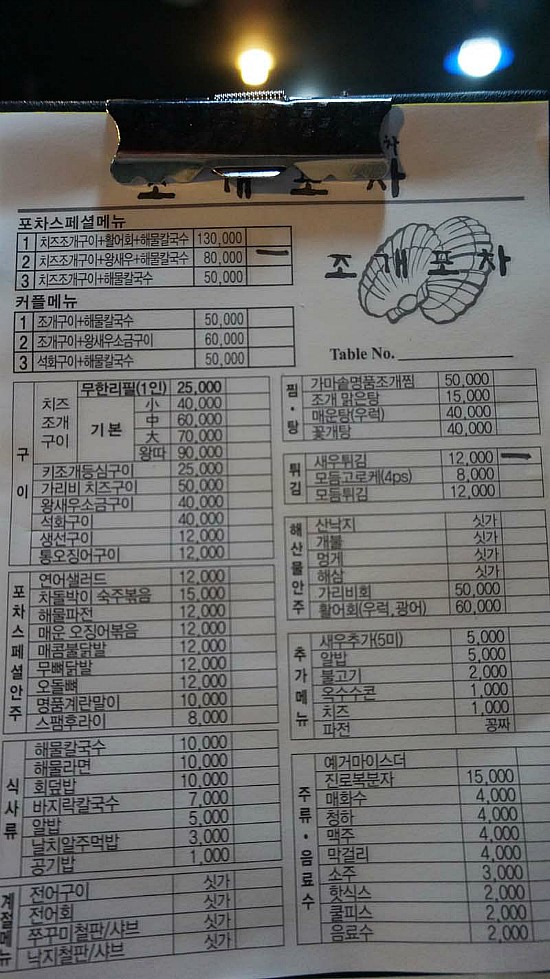 조 개 포 차
포차스페셜메뉴
1 치즈조개구이+활어회+해물칼국수 130,000
2 치즈조개구이+왕새우+해물칼국수 80,000
3 치즈조개구이+해물칼국수 50,000
조 개 포 차
커플메뉴
1 조개구이+해물칼국수 50,000
2 조개구이+왕새우소금구이 60,000
3 석화구이+해물칼국수 50,000
Table No.
구이
치즈 조개 구이
무한리필(1인) 25,000
기본
小 40,000
中 60,000
大 70,000
왕따 90,000
키조개등심구이 25,000
가리비 치즈구이 50,000
왕새우소금구이 40,000
석화구이 40,000
생선구이 12,000
통오징어구이 12,000
포차스페셜안주
연어샐러드 12,000
차돌박이 숙주볶음 15,000
해물파전 12,000
매운 오징어볶음 12,000
매콤불닭발 12,000
무뼈닭발 12,000
오돌뼈 12,000
명품계란말이 10,000
스팸후라이 8,000
식사류
해물칼국수 10,000
해물라면 10,000
회덮밥 10,000
바지락칼국수 7,000
알밥 5,000
날치알주먹밥 3,000
공기밥 1,000
계절메뉴
전어구이 싯가
전어회 싯가
쭈꾸미철판/샤브 싯가
낙지철판/샤브 싯가
찜·탕
가마솥명품조개찜 50,000
조개 맑은탕 15,000
매운탕(우럭) 40,000
꽃게탕 40,000
튀김
새우튀김 12,000
모듬고로케(4ps) 8,000
모듬튀김 12,000
해산물안주
산낙지 싯가
개불 싯가
멍게 싯가
해삼 싯가
가리비회 50,000
활어회(우럭,광어) 60,000
추가메뉴
새우추가(5미) 5,000
알밥 5,000
불고기 2,000
옥수수콘 1,000
치즈 1,000
파전 꽁짜
주류·음료수
예거마이스더
진로복분자 15,000
매화수 4,000
청하 4,000
맥주 4,000
막걸리 4,000
소주 3,000
핫식스 2,000
쿨피스 2,000
음료수 2,000